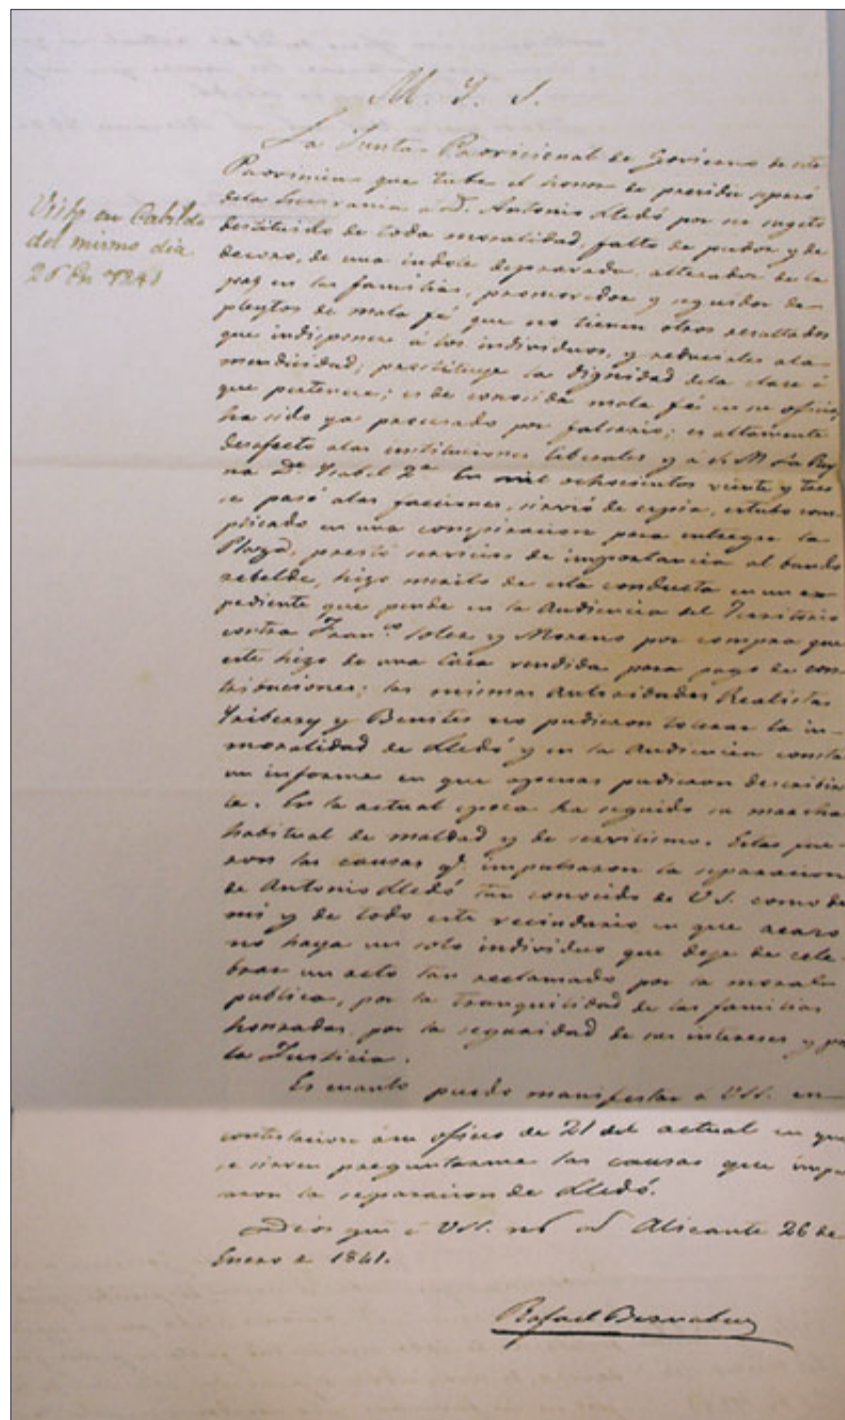 M. I. S.
La Junta Provicional de Govierno de este
Provincia que tube el honor de presidir separó
dela Escrivania á D. Antonio Lledó por ser sugeto
destituido de toda moralidad, falto de pudor y de
decoro, de una indole depravada, alterador de la
paz en las familias, promovedor y seguidor de
pleytos de mala fé que no tienen otros resultados
que indisponer á los individuos, y reducirles ala
mendicidad; prostituye la dignidad dela clase á
que pertenece; es de conocida mala fé en su oficio,
ha sido ya procesado por falsario; es altamente
desafecto alas instituciones liberales y á S. M. La Rey
na Dª Ysabel 2ª En mil ochocientos veinte y tres
se pasó alas facciones, sirvió de espia, estubo com-
plicado en una conspiracion para entregar la
Plaza, prestó servicios de importancia al bando
rebelde, hizo merito de esta conducta en un ex-
pediente que pende en la Audiencia del Territorio
contra Franco Soler y Moreno por compra que
este hizo de una Casa vendida para pago de con-
tribuciones; las mismas Autoridades Realistas
Yriberry y Benites no pudieron tolerar la in-
moralidad de Lledó y en la Audiencia consta
un informe en que apenas pudieron describir
le. En la actual epoca ha seguido su marcha
habitual de maldad y de servilismo. Estas fue-
ron las causas q.e impulsaron la separacion
de Antonio Lledó tan conocido de V.S. como de
mi y de todo este vecindario en que acaso
no haya un solo individuo que deje de cele-
brar un acto tan reclamado por la moral
publica, por la tranquilidad de las familias
honradas, por la seguridad de sus intereses y por
la Justicia.
Es cuanto puedo manifestar á VSS. en
contestacion á su oficio de 21 del actual en que
se sirven preguntarme las causas que impul
saron la separacion de Lledó.
Dios gue á VSS. ms as Alicante 26 de
Enero de 1841.
Rafael Bernabeu
Visto en Cabildo
del mismo dia
26 En 1841